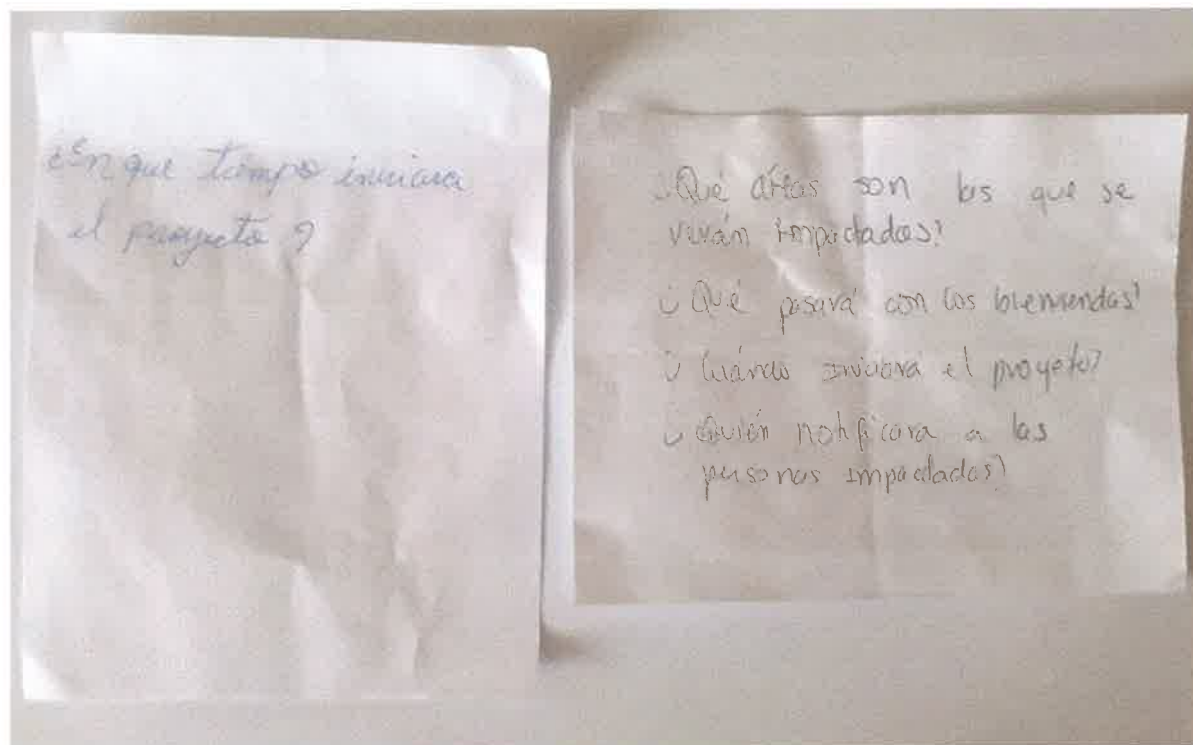 ¿En que tiempo iniciara
el proyecto?
¿Qué áreas son las que se
verán impactadas?
¿Qué pasará con los bienhendas?
¿Cuándo iniciará el proyeto?
¿Quién notificara a las
personas impactadas?